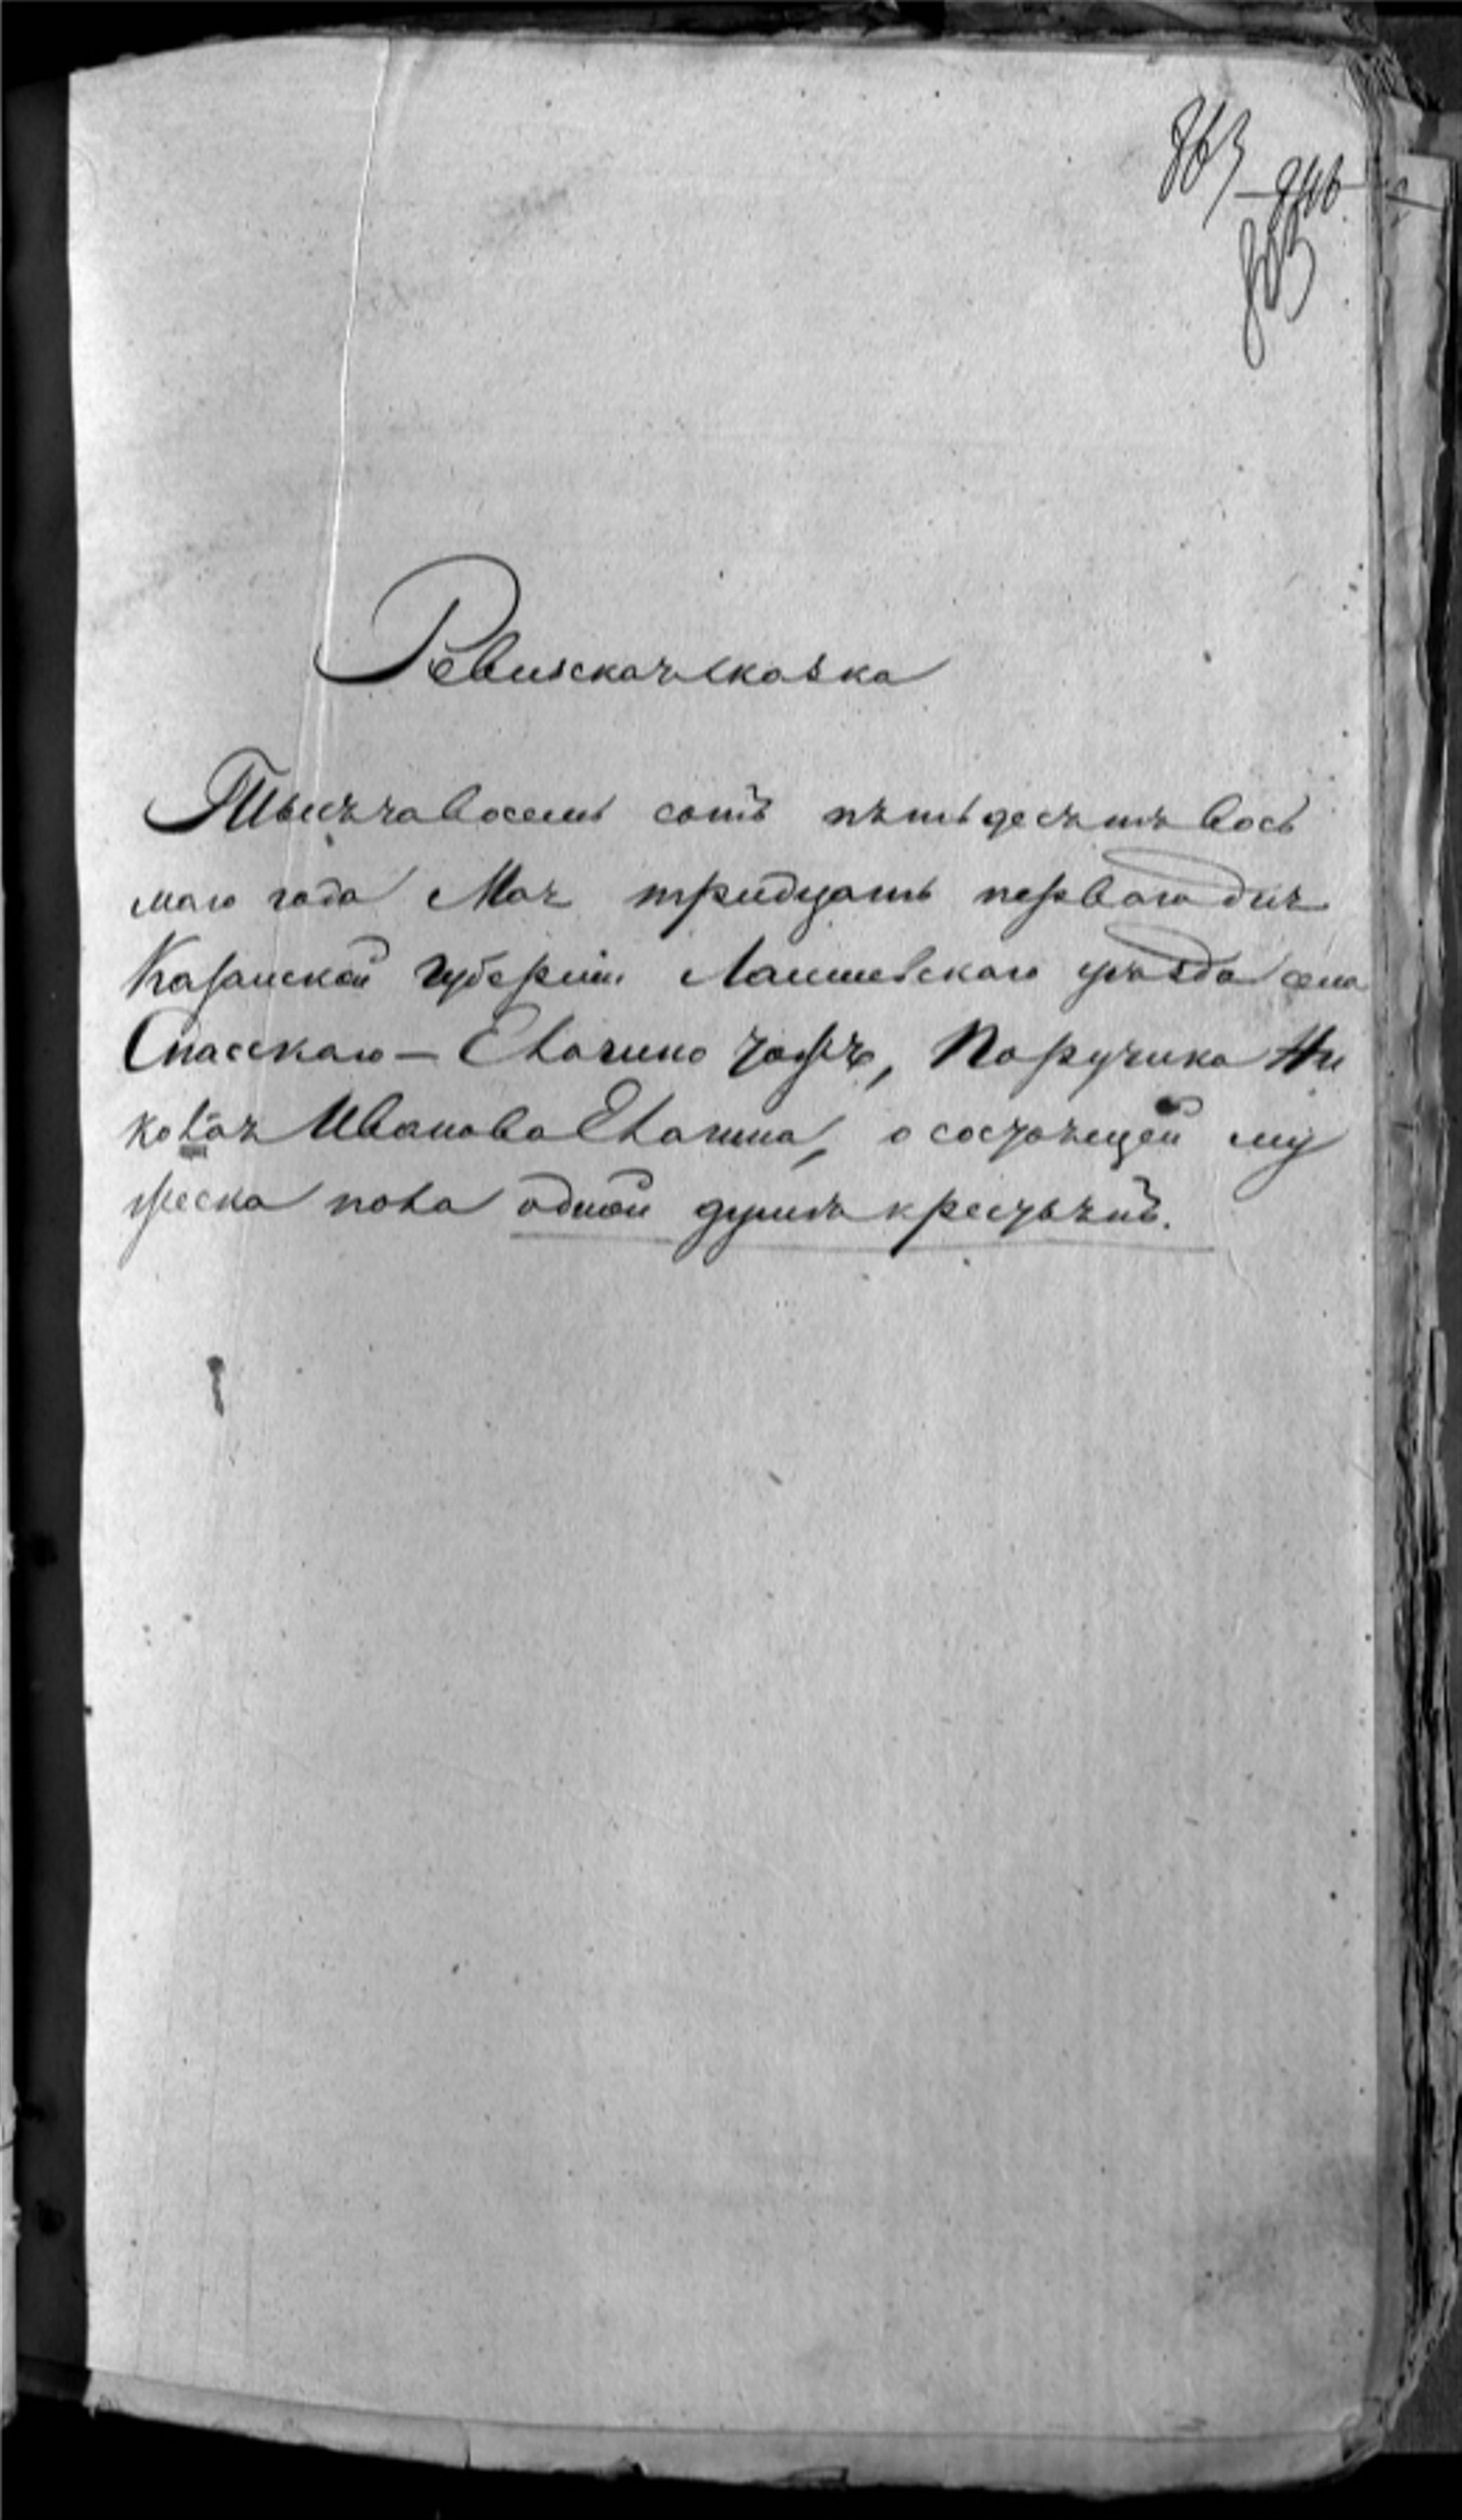 863
846
803
Ревизская сказка
Тысяча восемь сотъ пятьдесятъ вось
маго года Мая тридцать перваго дня
Казанской Губерніи Лаишевскаго уѣзда села
Спасскаго — тожъ, Поручика Ни
колая Иванова о состоящей му
жеска пола одной душѣ крестьянъ.